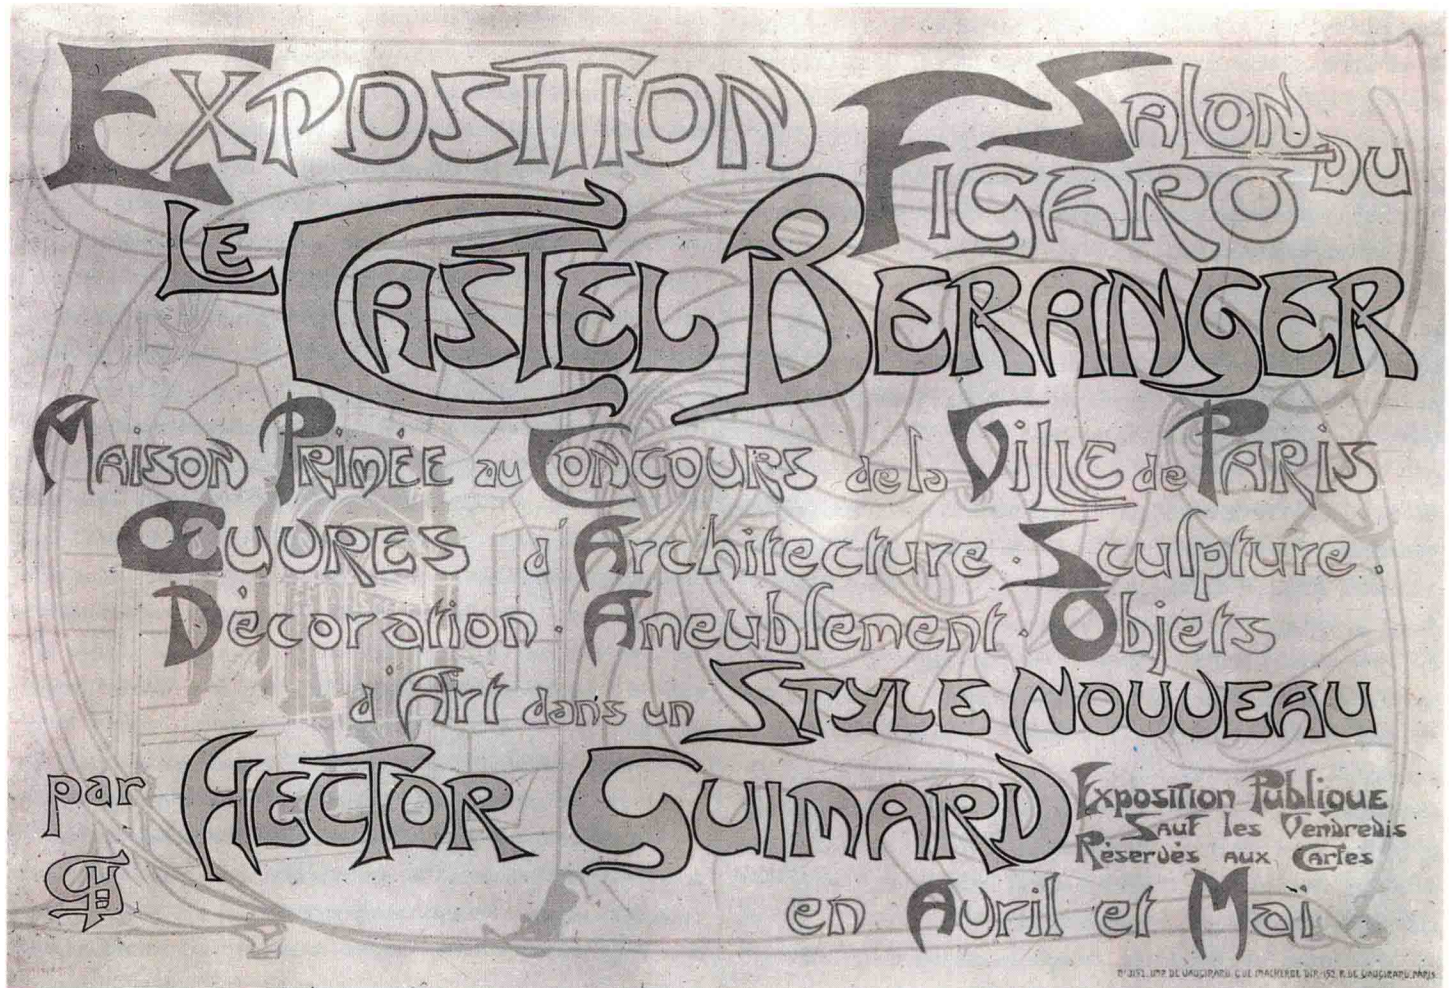 EXPOSITION SALON DU
FIGARO
LE CASTEL BERANGER
MAISON PRIMÉE au CONCOURS de la VILLE de PARIS
ŒUVRES d'Architecture · Sculpture ·
Décoration · Ameublement · Objets
d'Art dans un STYLE NOUVEAU
par HECTOR GUIMARD
EXPOSITION PUBLIQUE
SAUF les Vendredis
Réservés AUX Cartes
en Avril et Maï